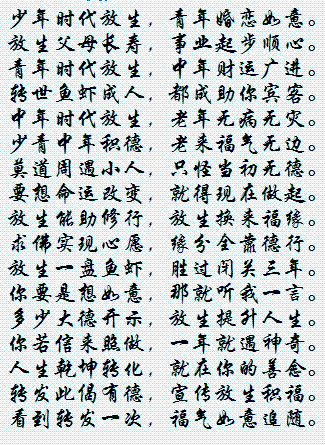 少年时代放生，青年婚恋如意。
放生父母长寿，事业起步顺心。
青年时代放生，中年财运广进。
转世鱼虾成人，都成助你宾客。
中年时代放生，老年无病无灾。
少青中年积德，老来福气无边。
莫道周遇小人，只怪当初无德。
要想命运改变，就得现在做起。
放生能助修行，放生换来福缘。
求佛实现心愿，缘分全靠德行。
放生一盘鱼虾，胜过闭关三年。
你要是想如意，那就听我一言。
多少大德开示，放生提升人生。
你若信来照做，一年就遇神奇。
人生乾坤转化，就在你的善念。
转发此偈有德，宣传放生积福。
看到转发一次，福气如意追随。